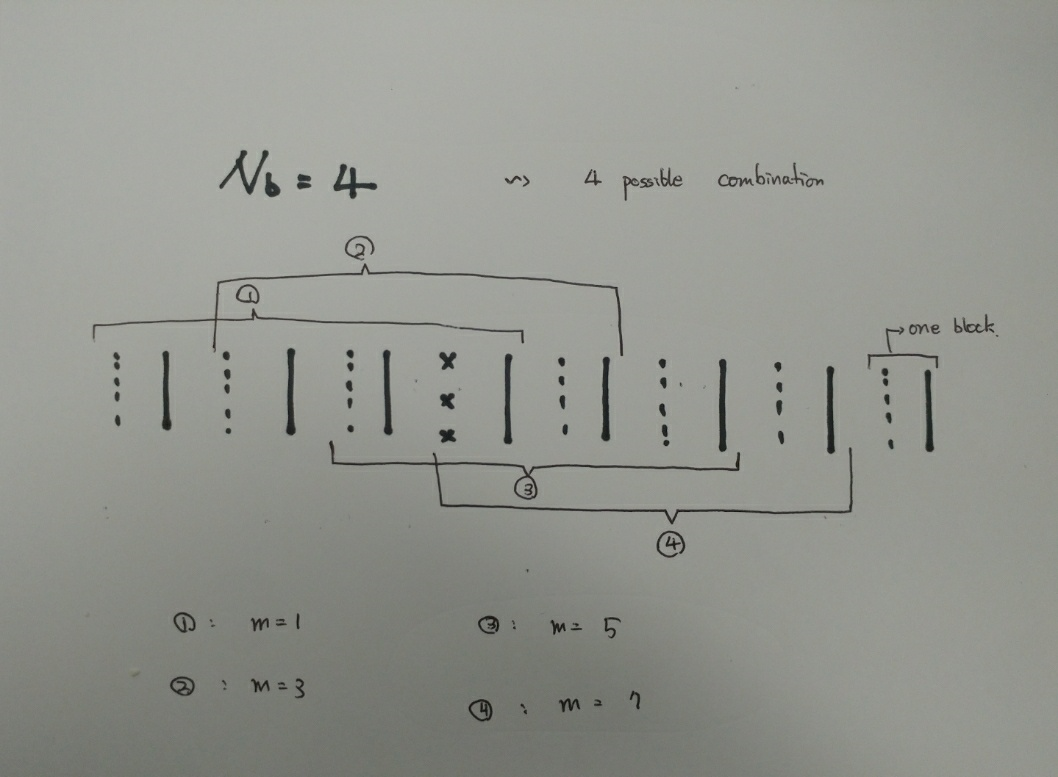 N_b = 4 ~> 4 possible combination
②
①
→ one block.
③
④
①: m=1
③: m= 5
②: m=3
④: m= 7